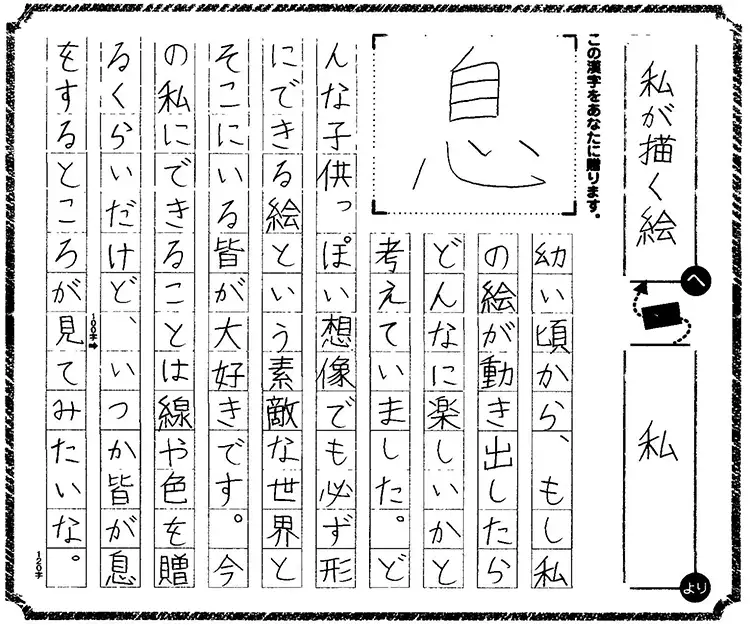 私が描く絵
へ
私
より
この漢字をあなたに贈ります。
息
幼い頃から、もし私
の絵が動き出したら
どんなに楽しいかと
考えていました。ど
んな子供っぽい想像でも必ず形
にできる絵という素敵な世界と
そこにいる皆が大好きです。今
の私にできることは線や色を贈
るくらいだけど、いつか皆が息
をするところが見てみたいな。
100字
120字